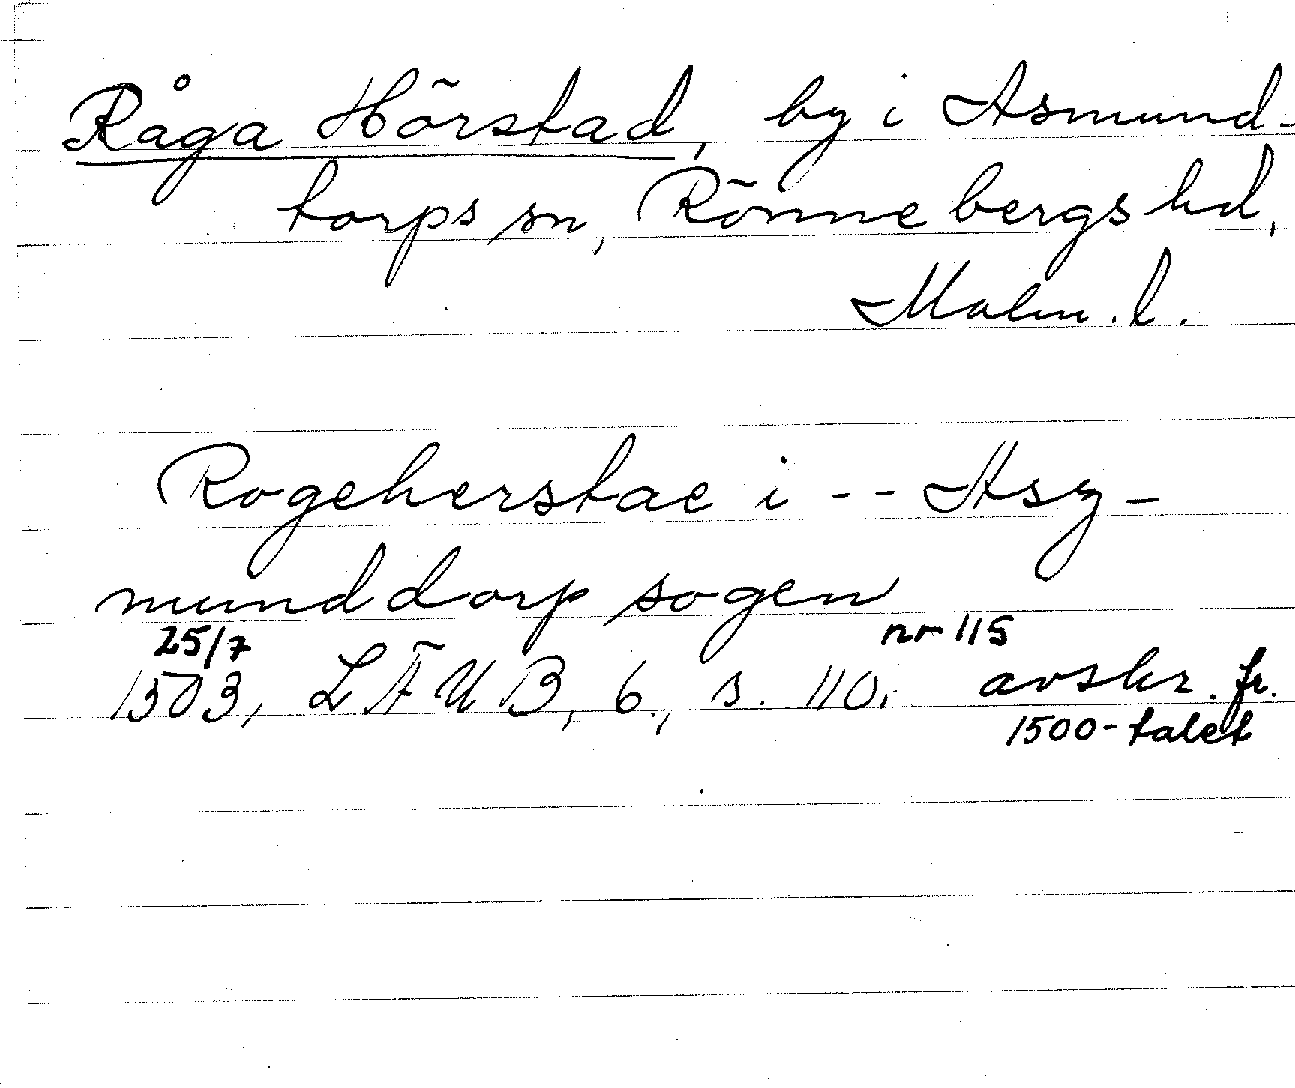 Råga Hörstad, by i Asmund-
torps sn, Rönnebergs hd,
Malm. l.
Rogeherstae i -- Asz-
munddorp sogen
25/7 nr 115
1503, LÄUB, 6., s. 110. avskr. fr.
1500-talet